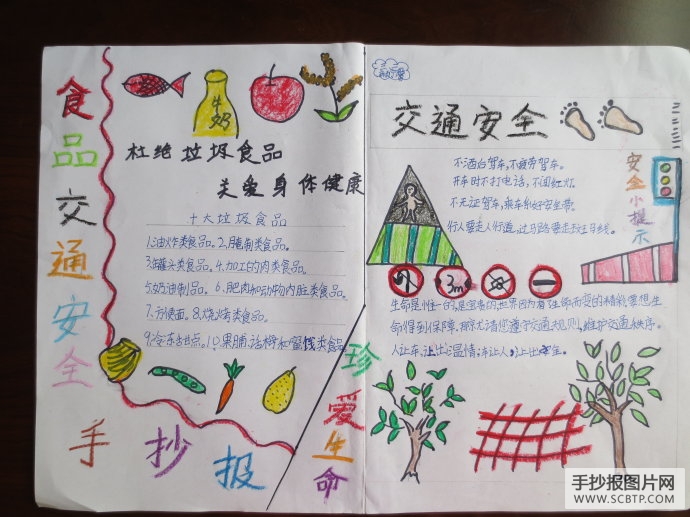 食品交通安全
手抄报
牛奶
杜绝垃圾食品
关爱身体健康
十大垃圾食品
1.油炸类食品。2.腌制类食品。
3.罐头类食品。4.加工的肉类食品。
5.奶油制品。6.肥肉和动物内脏类食品。
7.方便面。8.烧烤类食品。
9.冷冻甜点。10.果脯、话梅和蜜饯类食品
珍爱生命
交通安全
不酒后驾车,不疲劳驾车。
开车时不打电话,不闯红灯。
不无证驾车,乘车系好安全带。
行人要走人行道,过马路要走斑马线。
安全小提示
3m
生命是惟一的,是宝贵的,世界因为有了生命而变的精彩,要想生
命得到保障,那就尤请您遵守交通规则,维护交通秩序。
人让车,让出温情;车让人,让出
手抄报图片网
WWW.SCBTP.COM